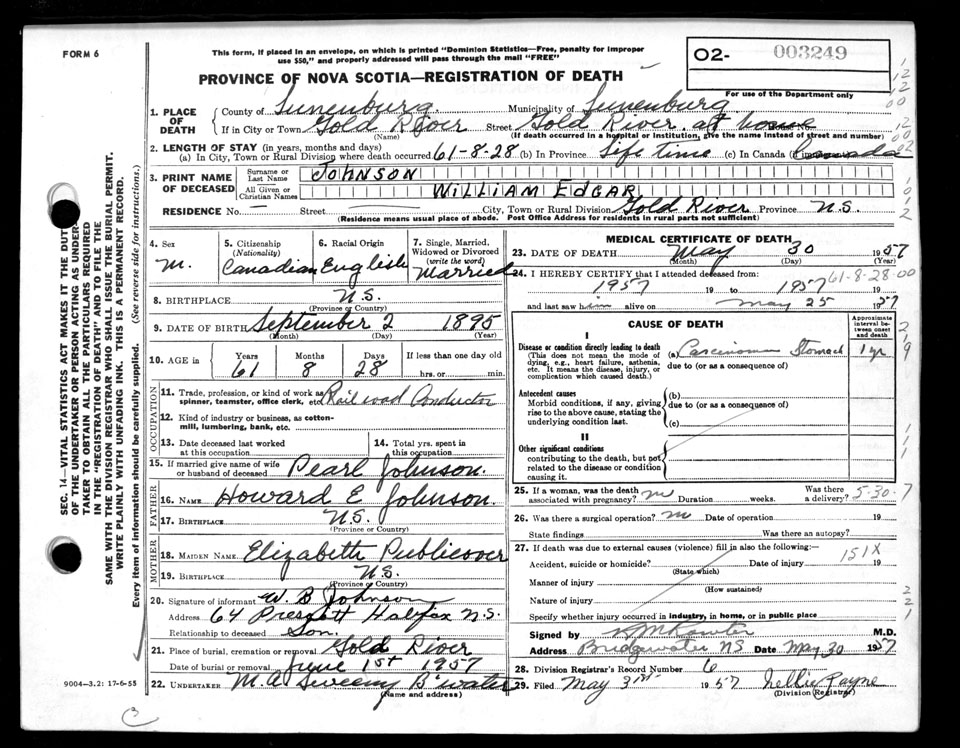 FORM 6
This form, if placed in an envelope, on which is printed "Dominion Statistics—Free, penalty for improper
use $50," and properly addressed will pass through the mail "FREE"
O2- 003249
For use of the Department only
PROVINCE OF NOVA SCOTIA—REGISTRATION OF DEATH
SEC. 14—VITAL STATISTICS ACT MAKES IT THE DUTY
OF THE UNDERTAKER OR PERSON ACTING AS UNDER-
TAKER TO OBTAIN ALL THE PARTICULARS REQUIRED
IN THE "REGISTRATION OF DEATH" AND TO FILE THE
SAME WITH THE DIVISION REGISTRAR WHO SHALL ISSUE THE BURIAL PERMIT.
WRITE PLAINLY WITH UNFADING INK. THIS IS A PERMANENT RECORD.
Every item of information should be carefully supplied. (See reverse side for instructions.)
1. PLACE OF DEATH
County of Lunenburg Municipality of Lunenburg
If in City or Town Gold River Street Gold River at home House No.
(Name) (If death occurred in a hospital or institution, give the name instead of street and number)
2. LENGTH OF STAY (in years, months and days)
(a) In City, Town or Rural Division where death occurred 61-8-28 (b) In Province Life time (c) In Canada (if immigrant) Canada
3. PRINT NAME OF DECEASED
Surname or Last Name JOHNSON
All Given or Christian Names WILLIAM EDGAR
RESIDENCE No. — Street — City, Town or Rural Division Gold River Province N.S.
(Residence means usual place of abode. Post Office Address for residents in rural parts not sufficient)
4. Sex M.
5. Citizenship (Nationality) Canadian
6. Racial Origin English
7. Single, Married, Widowed or Divorced (write the word) Married
8. BIRTHPLACE N.S.
(Province or Country)
9. DATE OF BIRTH September 2 1895
(Month) (Day) (Year)
10. AGE in Years Months Days If less than one day old
61 8 28 hrs. or min.
OCCUPATION
11. Trade, profession, or kind of work as spinner, teamster, office clerk, etc. Railroad Conductor
12. Kind of industry or business, as cotton-mill, lumbering, bank, etc.
13. Date deceased last worked at this occupation
14. Total yrs. spent in this occupation
15. If married give name of wife or husband of deceased Pearl Johnson.
FATHER
16. NAME Howard E Johnson.
17. BIRTHPLACE N.S.
(Province or Country)
MOTHER
18. MAIDEN NAME Elizabeth Publicover
19. BIRTHPLACE N.S.
(Province or Country)
20. Signature of informant W. B Johnson
Address 64 Prescott Halifax N.S.
Relationship to deceased Son.
21. Place of burial, cremation or removal Gold River
Date of burial or removal June 1st 1957
22. UNDERTAKER M.A Sweeny B'water
(Name and address)
9004—3.2: 17-6-55
MEDICAL CERTIFICATE OF DEATH
23. DATE OF DEATH May 30 1957
(Month) (Day) (Year)
24. I HEREBY CERTIFY that I attended deceased from: 61-8-28-00
1957 19 to 1957 19
and last saw him alive on May 25 1957
CAUSE OF DEATH
Approximate interval between onset and death
I
Disease or condition directly leading to death (a) Carcinoma Stomach 1 yr
(This does not mean the mode of dying, e.g., heart failure, asthenia, etc. It means the disease, injury, or complication which caused death.)
due to (or as a consequence of)
Antecedent causes
Morbid conditions, if any, giving rise to the above cause, stating the underlying condition last.
(b)
due to (or as a consequence of)
(c)
II
Other significant conditions
contributing to the death, but not related to the disease or condition causing it.
25. If a woman, was the death associated with pregnancy? Duration weeks. Was there a delivery? 5-30-7
26. Was there a surgical operation? Date of operation 19
State findings Was there an autopsy?
27. If death was due to external causes (violence) fill in also the following: 151X
Accident, suicide or homicide? Date of injury 19
(State which)
Manner of injury
(How sustained)
Nature of injury
Specify whether injury occurred in industry, in home, or in public place
Signed by M.D.
Address Bridgewater NS Date May 30 1957
28. Division Registrar's Record Number 6
29. Filed May 1957 Nellie Rayne
(Division Registrar)